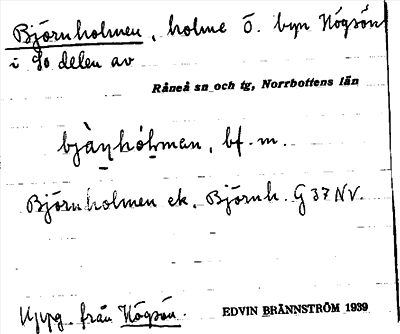 Björnholmen, holme Ö. byn Högsön
i So delen av
Råneå sn och tg, Norrbottens län
bjȧṉhóḻman, bf. m.
Björnholmen ek. Björnh. G 37 NV.
Uppg. från Högsön.
EDVIN BRÄNNSTRÖM 1939